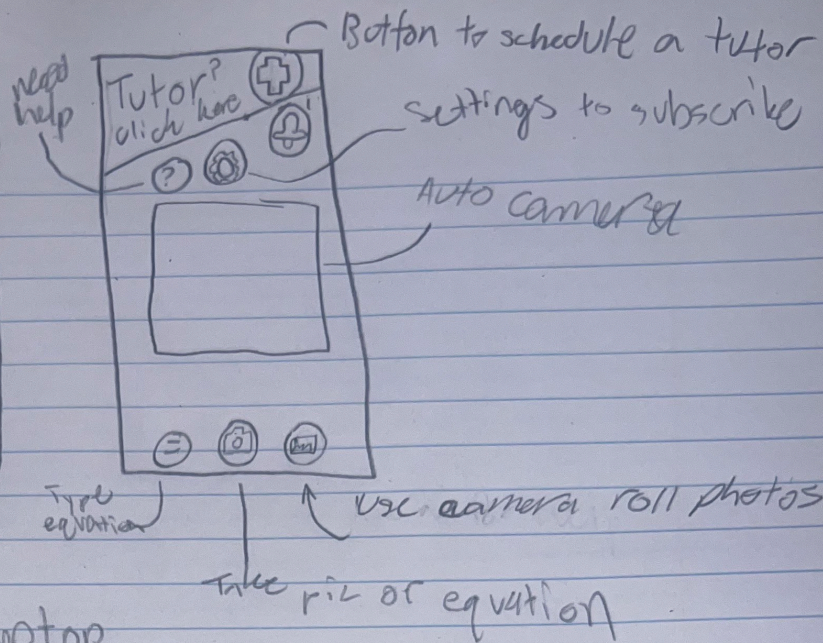 Button to schedule a tutor
need
help
Tutor?
click here
settings to subscribe
?
Auto camera
Type
equation
use camera roll photos
Take pic of equation